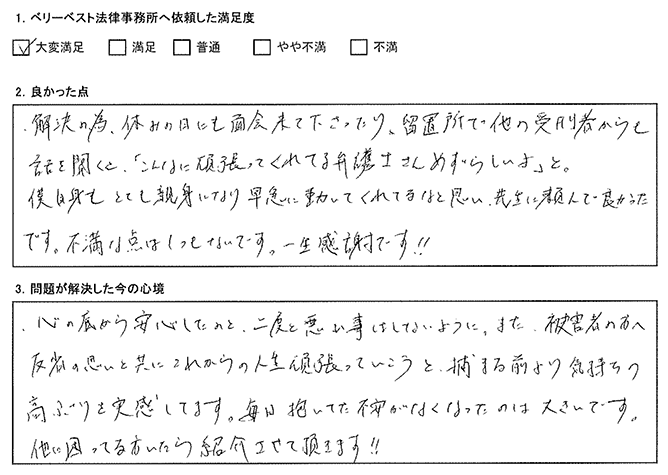 1. ベリーベスト法律事務所へ依頼した満足度
大変満足 満足 普通 やや不満 不満
2. 良かった点
・解決の為、休みの日にも面会来て下さったり、留置所で他の受刑者からも
話を聞くと、「こんなに頑張ってくれてる弁護士さんめずらしいよ」と。
僕自身も とても親身になり 早急に動いてくれてるなと思い、先生に頼んで良かった
です。不満な点は1つもないです。一生感謝です!!
3. 問題が解決した今の心境
・心の底から安心したのと、二度と悪い事はしないように、また、被害者の方へ
反省の思いと共にこれからの人生頑張っていこうと、捕まる前より気持ちの
高ぶりを実感してます。毎日抱いてた不安がなくなったのは大きいです。
他に困ってる方いたら紹介させて頂きます!!